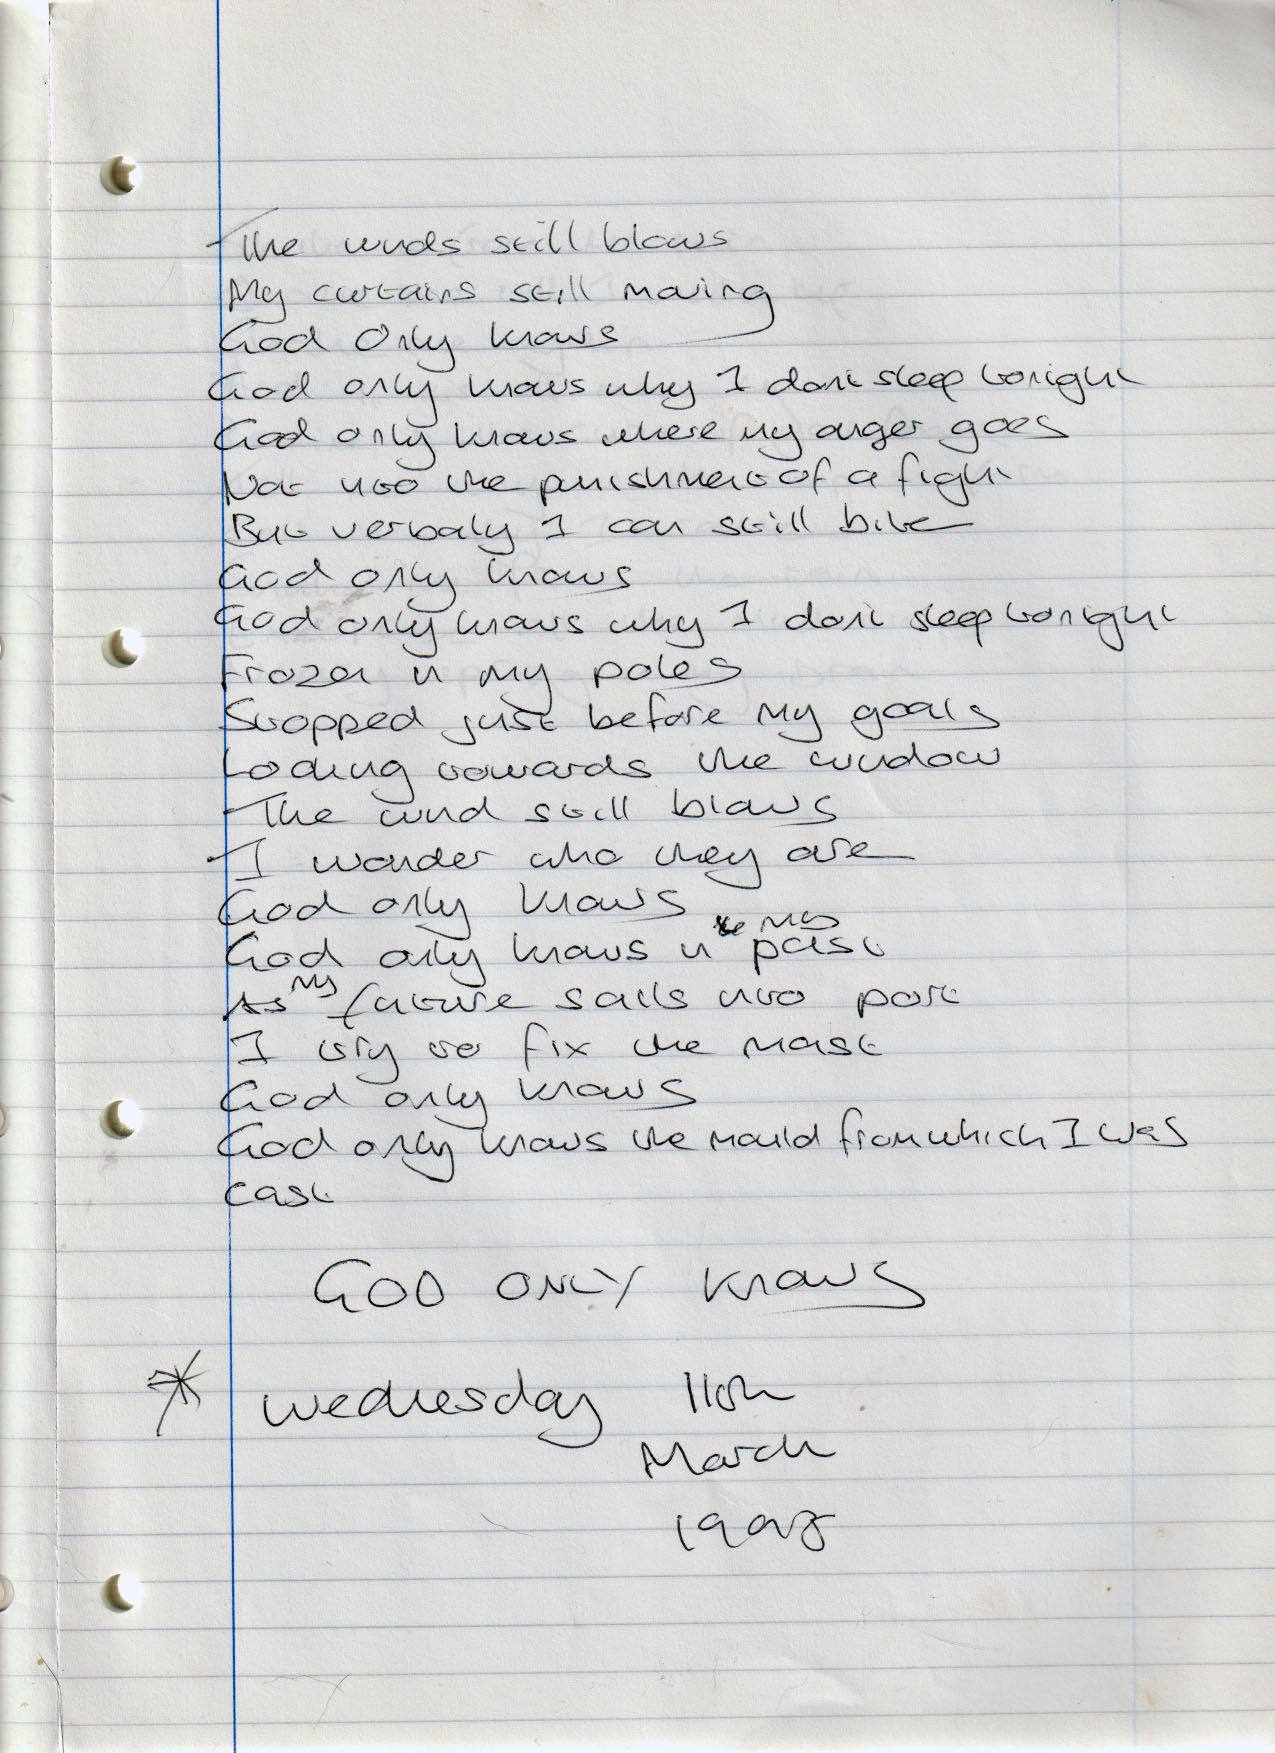 The winds still blows
My curtains still moving
God Only knows
God only knows why I dont sleep tonight
God only knows where my anger goes
Not into the punishment of a fight
But verbaly I can still bite
God only knows
God only knows why I dont sleep tonight
Frozen in my poles
Stopped just before my goals
Looking towards the window
The wind still blows
I wonder who they are
God only knows
God only knows in my past
As my future sails into port
I try to fix the mast
God only knows
God only knows the mould from which I was
cast
GOD ONLY KNOWS
* Wednesday 11th
March
1998